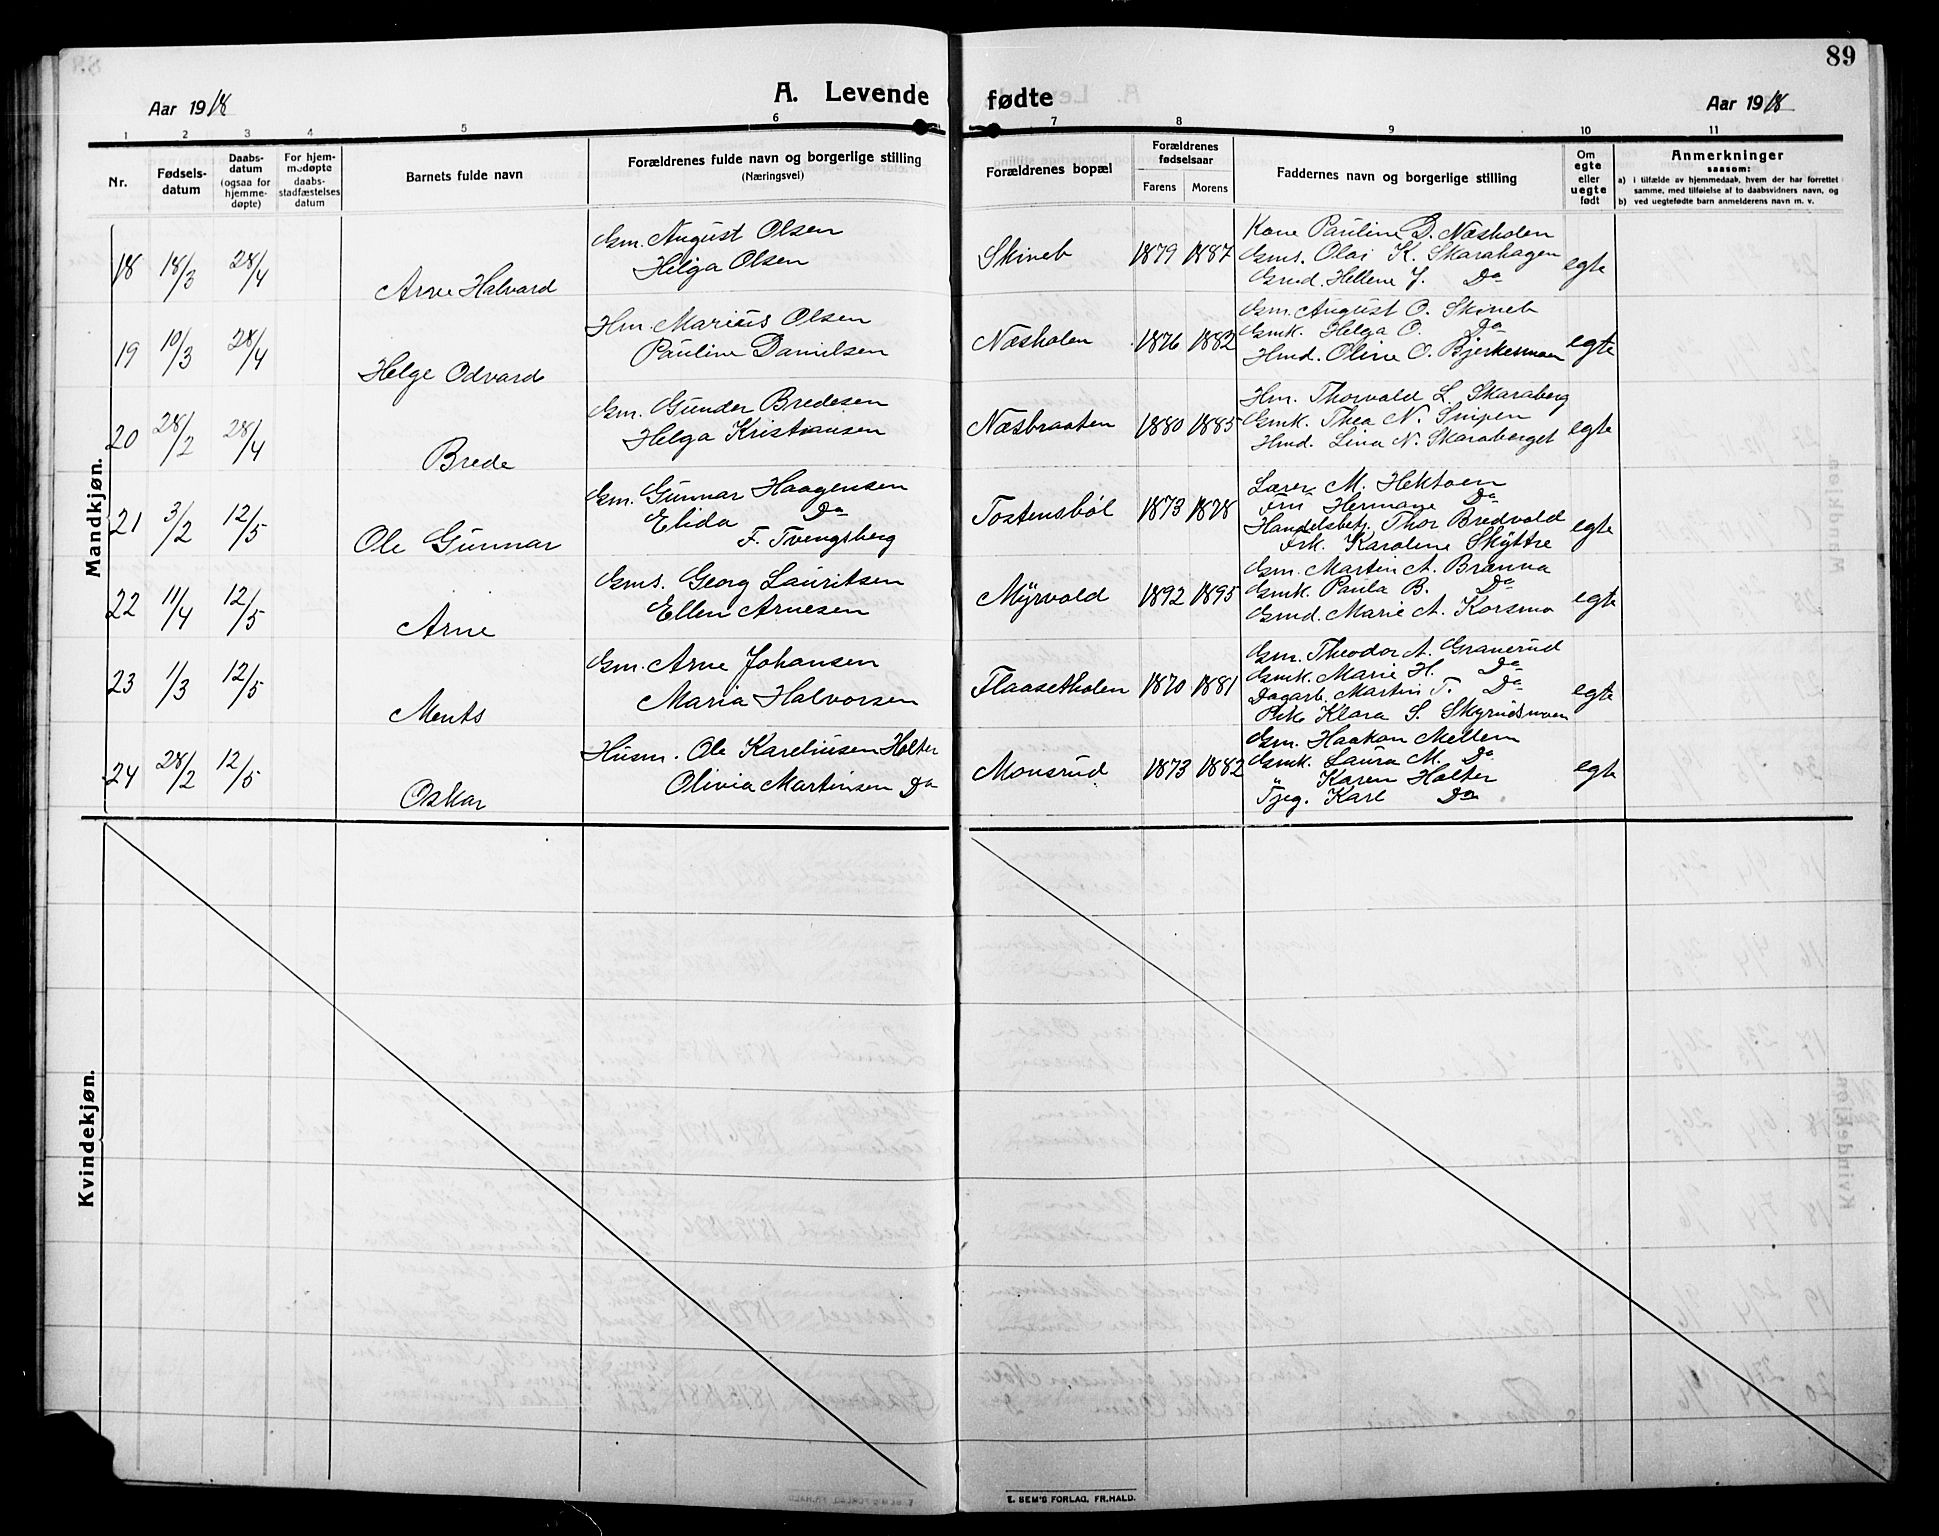 89
A. Levende fødte
Aar 1918
Aar 1918
1 2 3 4 5 6 7 8 9 10 11
Nr.
Fødsels-
datum
Daabs-
datum
(ogsaa for
hjemme-
døpte)
For hjem-
medøpte
daabs-
stadfæstelses
datum
Barnets fulde navn
Forældrenes fulde navn og borgerlige stilling
(Næringsvei)
Forældrenes bopæl
Forældrenes
fødselsaar
Farens Morens
Faddernes navn og borgerlige stilling
Om
egte
eller
uegte
født
Anmerkninger
saasom:
a) i tilfælde av hjemmedaab, hvem der har forrettet
samme, med tilføielse af to daabsvidners navn, og
b) ved uegtefødte barn anmelderens navn m. v.
Mandkjøn.
18 18/3 28/4 Arne Halvard
Gm. August Olsen
Helga Olsen
Skineb 1879 1887
Kone Pauline D. Næsholen
Gms. Olai K. Skarahagen
Gmd. Hellene J. Do
egte
19 10/3 28/4 Helge Odvard
Hm. Marius Olsen
Pauline Danielsen
Næsholen 1876 1882
Gm. August O. Skineb
Gmk. Helga O. Do
Hmd. Oline O. Bjerkesmoen
egte
20 28/2 28/4 Brede
Gm. Gunder Bredesen
Helga Kristiansen
Næsbraaten 1880 1885
Hm. Thorvald L. Skaraberg
Gmk. Thea N. Snipen
Hmd. Lina N. Skaraberget
egte
21 3/2 12/5 Ole Gunnar
Gm. Gunnar Haagensen
Elida Do
F. Tvengsberg
Tostensböl 1873 1878
Lærer M. Hektoen
Fru Hermane Do
Handelsbetj. Thor Bredvold
Frk. Karoline Skyttre
egte
22 11/4 12/5 Arne
Gms. Georg Lauritsen
Ellen Arnesen
Myrvold 1892 1895
Gm. Martin A. Brænna
Gmk. Paula B. Do
Gmd. Marie A. Korsmo
egte
23 1/3 12/5 Ments
Gm. Arne Johansen
Maria Halvorsen
Flaasetholen 1870 1881
Gm. Theodor A. Granerud
Gmk. Marie H. Do
Dagarb. Martin T. Do
Pike Klara S. Skyrudsmoen
egte
24 28/2 12/5 Oskar
Husm. Ole Kareliusen Holter
Olivia Martinsen Do
Monsrud 1873 1882
Gm. Haakon Mellem
Gmk. Laura M. Do
Karen Holter
Tjeg. Karl Do
egte
Kvindekjøn.
E. SEM'S FORLAG, FR.HALD.